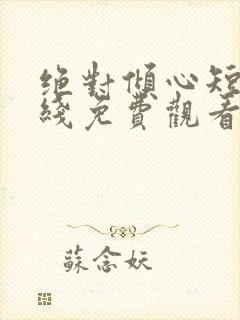 絕對傾心短
綫免費觀看
蘇念妖